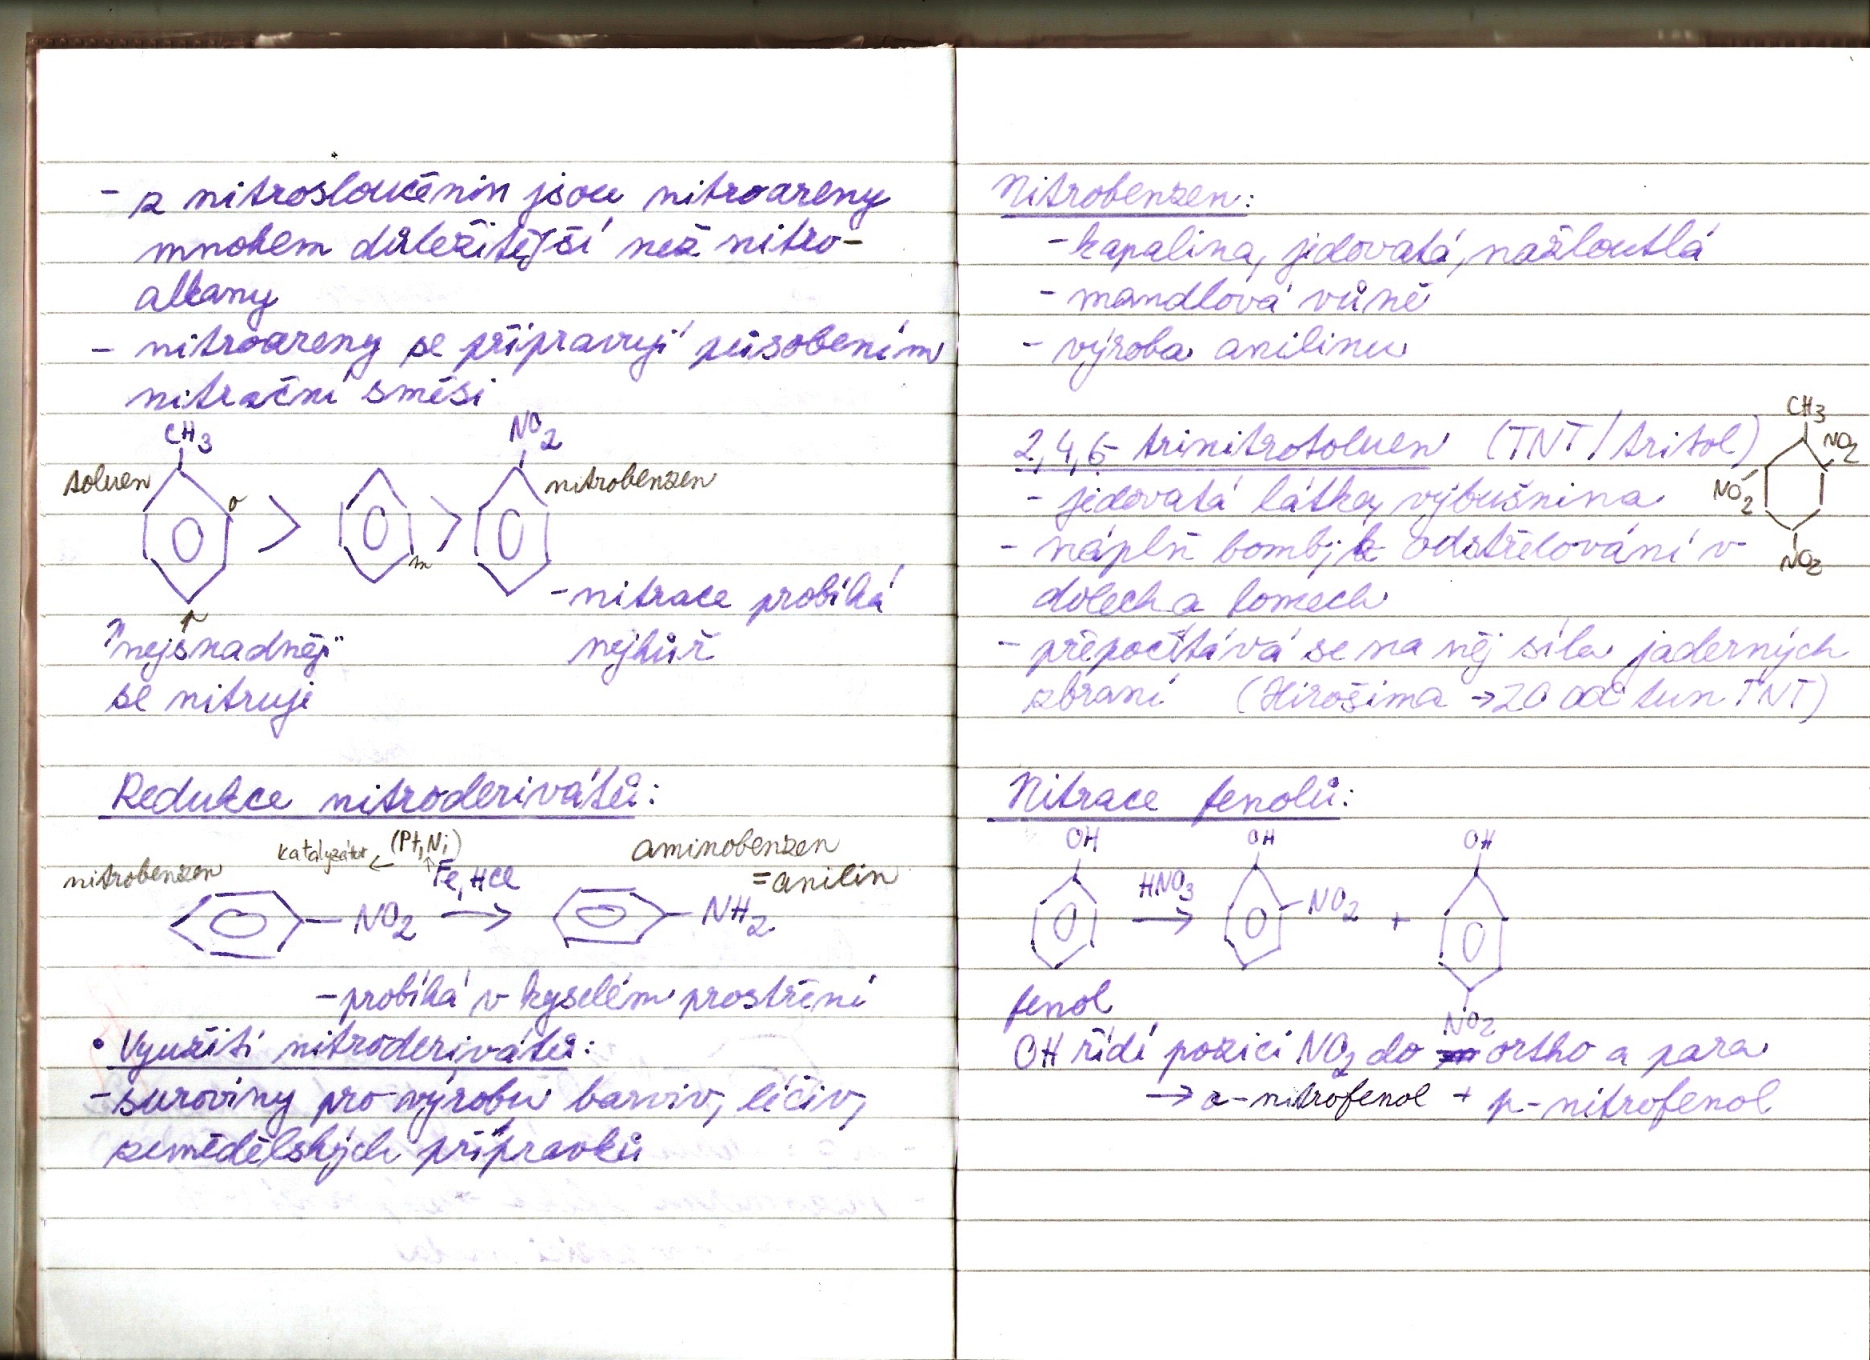 - z nitrosloučenin jsou nitroareny
mnohem důležitější než nitro-
alkany
- nitroareny se připravují působením
nitrační směsi
CH3
NO2
toluen
nitrobenzen
o
>
>
m
p
- nitrace probíhá
nejhůř
"nejsnadněji"
se nitruje
Redukce nitroderivátů:
katalyzátor ← (Pt, Ni)
aminobenzen
= anilin
nitrobenzen
Fe, HCl
- NO2 → - NH2
- probíhá v kyselém prostření
• Využití nitroderivátů:
- suroviny pro výrobu barviv, léčiv,
zemědělských přípravků
Nitrobenzen:
- kapalina, jedovatá, nažloutlá
- mandlová vůně
- výroba anilinu
2,4,6- trinitrotoluen (TNT/tritol)
CH3
NO2
NO2
NO2
- jedovatá látka, výbušnina
- náplň bomb; k odstřelování v
dolech a lomech
- přepočítává se na něj síla jaderných
zbraní (Hirošima → 20 000 tun TNT)
Nitrace fenolů:
OH OH OH
HNO3
→ - NO2 +
NO2
fenol
OH řídí pozici NO2 do ortho a para
→ o-nitrofenol + p-nitrofenol